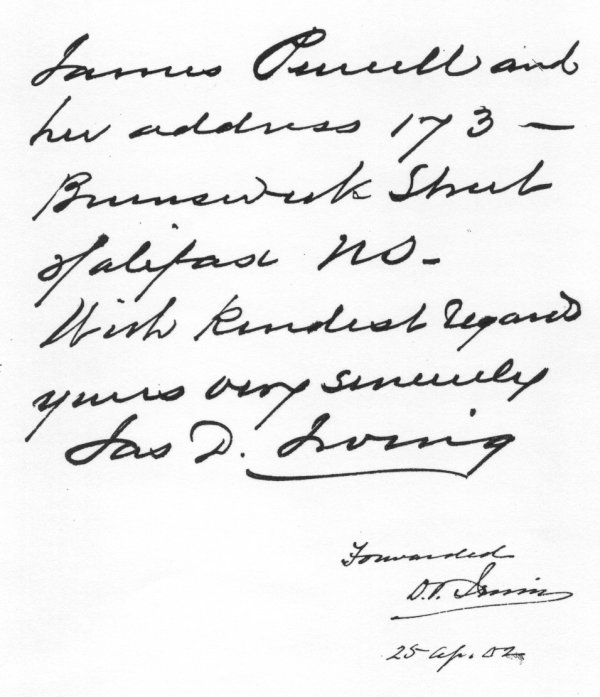 James Purcell and
her address 173 —
Brunswick Street
Halifax NS -
With kindest regards
yours very sincerely
Jas D. Irving
Forwarded
Irving
25 Ap. 02